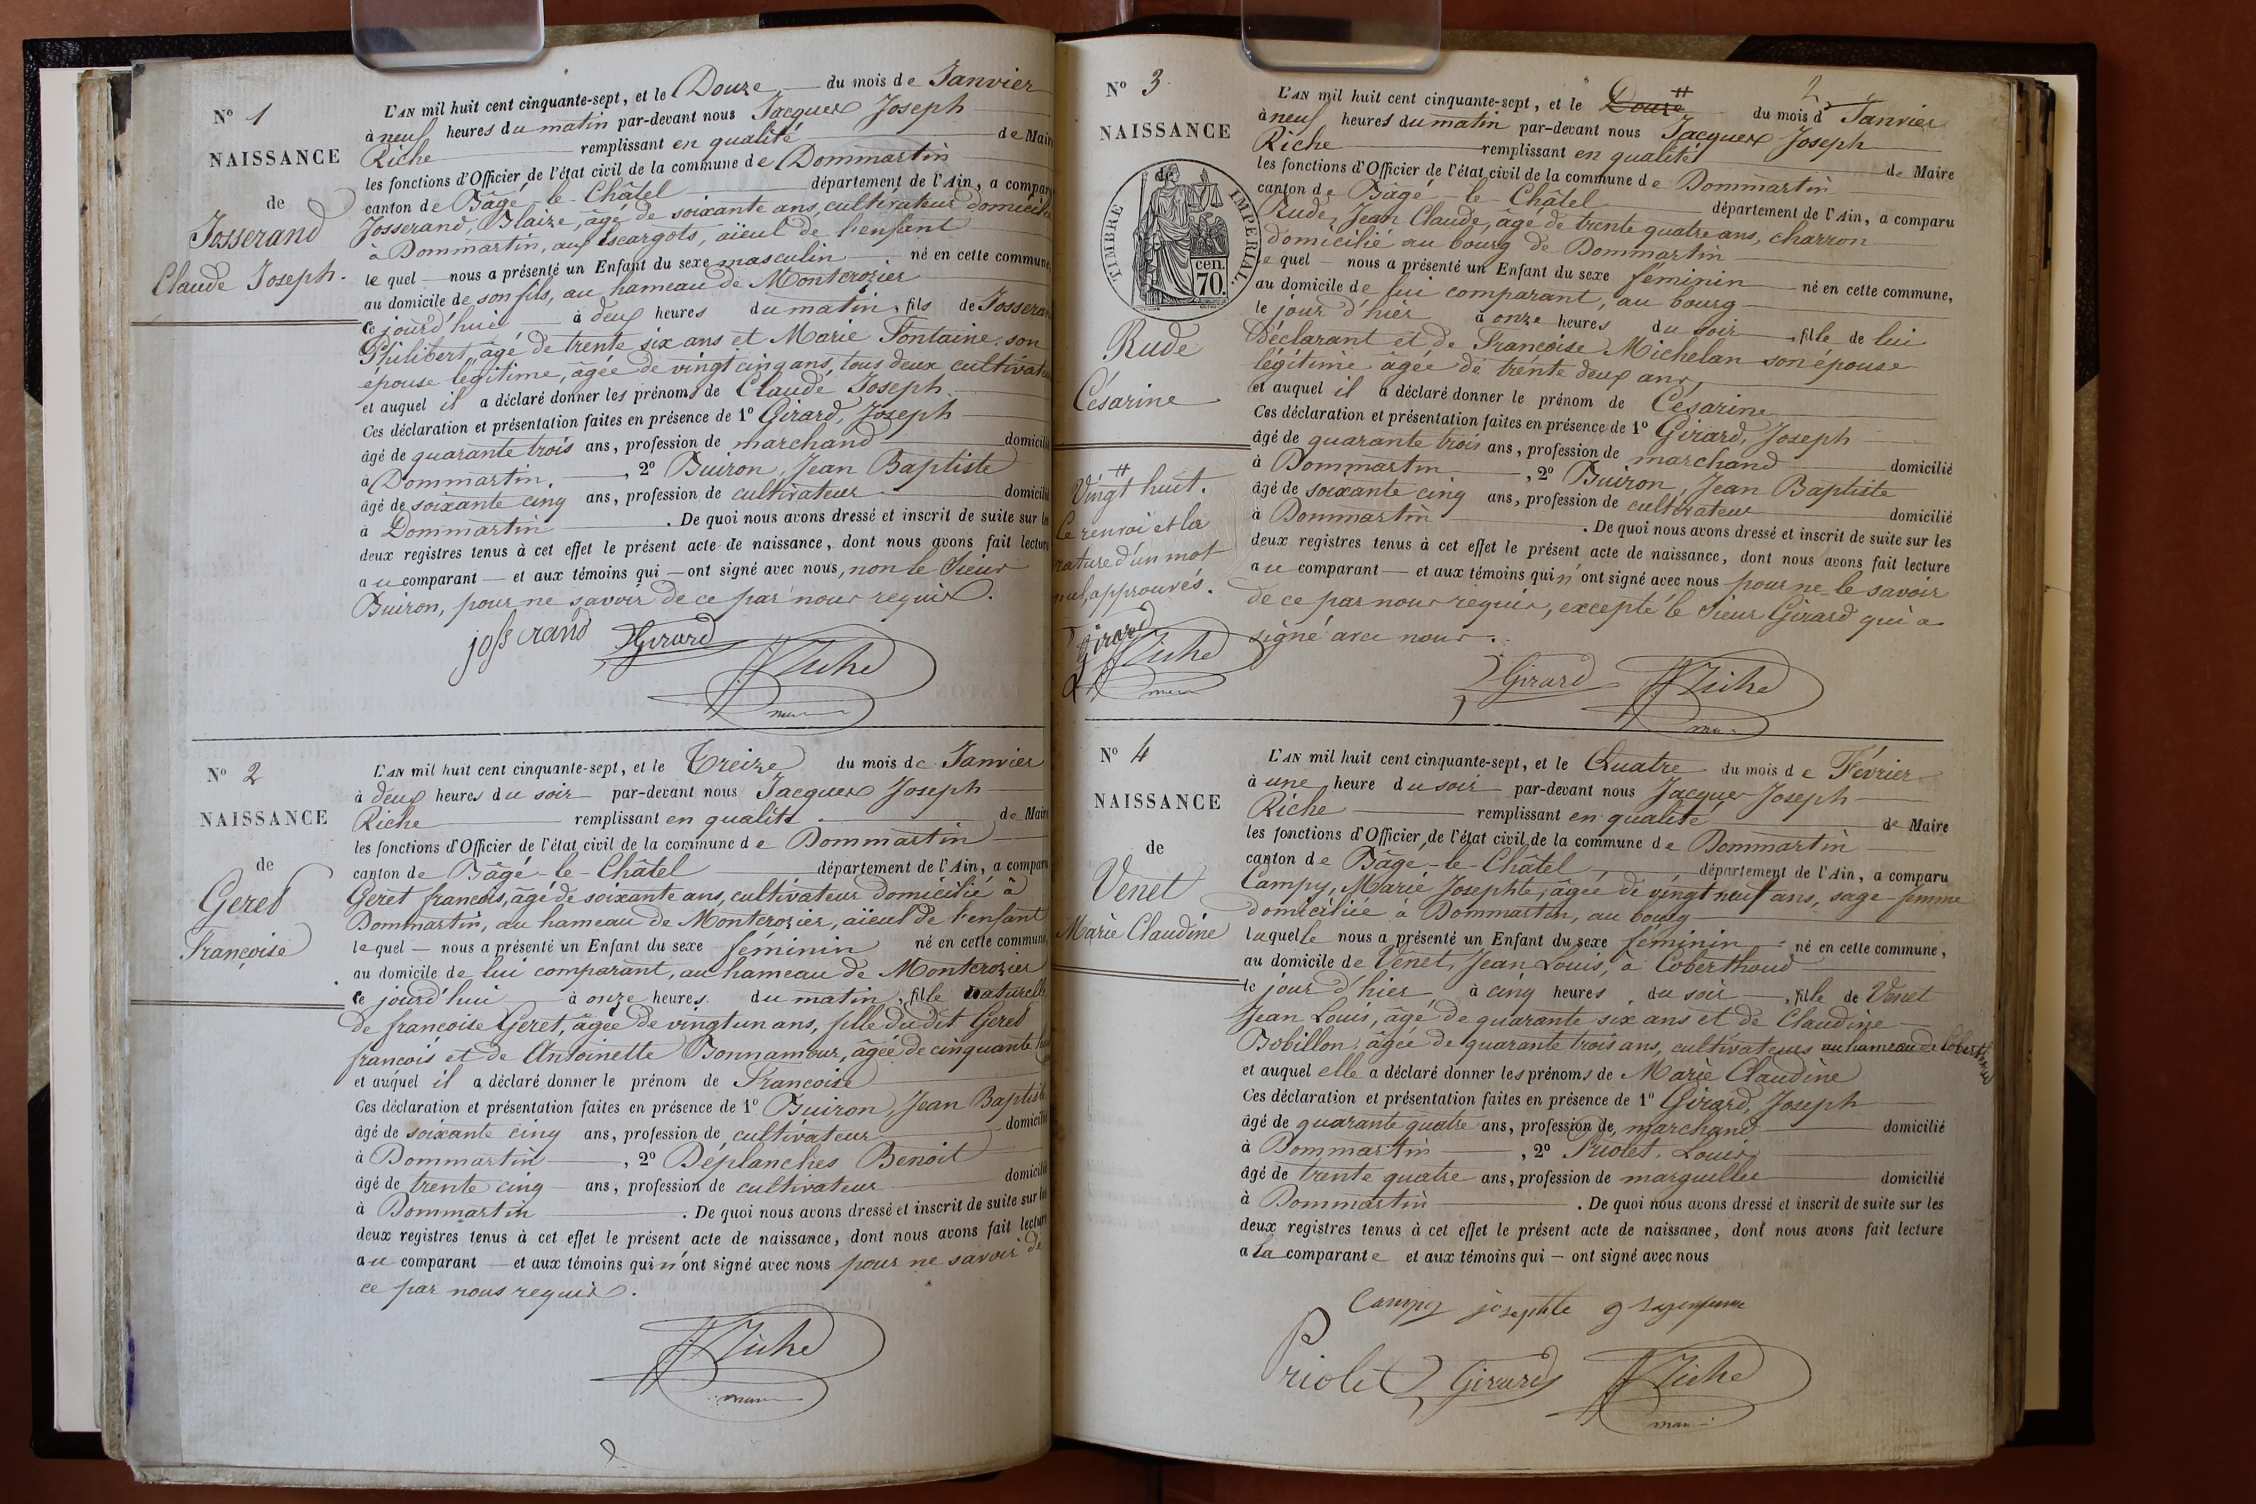 N° 1
NAISSANCE
de
Josserand
Claude Joseph.
L'AN mil huit cent cinquante-sept, et le Douze du mois de Janvier
à neuf heures du matin par-devant nous Jacques Joseph
Riche remplissant en qualité de Maire
les fonctions d'Officier de l'état civil de la commune de Dommartin
canton de Bâgé-le-Châtel département de l'Ain, a comparu
Josserand, Blaize, âgé de soixante ans, cultivateur domicilié
à Dommartin, aux Escargots, aïeul de l'enfant
le quel nous a présenté un Enfant du sexe masculin né en cette commune,
au domicile de son fils, au hameau de Montcrozier
ce jourd'hui à deux heures du matin, fils de Josserand
Philibert, âgé de trente six ans et Marie Fontaine, son
épouse légitime, agée de vingt cinq ans, tous deux cultivateurs
et auquel il a déclaré donner les prénoms de Claude Joseph
Ces déclaration et présentation faites en présence de 1° Girard, Joseph
âgé de quarante trois ans, profession de marchand domicilié
à Dommartin, 2° Buiron, Jean Baptiste
âgé de soixante cinq ans, profession de cultivateur domicilié
à Dommartin. De quoi nous avons dressé et inscrit de suite sur les
deux registres tenus à cet effet le présent acte de naissance, dont nous avons fait lecture
au comparant et aux témoins qui ont signé avec nous, non le Sieur
Buiron, pour ne savoir de ce par nous requis.
josserand Girard
JJRiche
maire
N° 2
NAISSANCE
de
Geret
Françoise
L'AN mil huit cent cinquante-sept, et le Treize du mois de Janvier
à deux heures du soir par-devant nous Jacques Joseph
Riche remplissant en qualité de Maire
les fonctions d'Officier de l'état civil de la commune de Dommartin
canton de Bâgé-le-Châtel département de l'Ain, a comparu
Geret francois, âgé de soixante ans, cultivateur domicilié à
Dommartin, au hameau de Montcrozier, aïeul de l'enfant
le quel nous a présenté un Enfant du sexe féminin né en cette commune,
au domicile de lui comparant, au hameau de Montcrozier
ce jourd'hui à onze heures du matin, fille naturelle
de françoise Geret, âgée de vingt un ans, fille du dit Geret
francois et de Antoinette Bonnamour, âgée de cinquante
et auquel il a déclaré donner le prénom de Francoise
Ces déclaration et présentation faites en présence de 1° Buiron, Jean Baptiste
âgé de soixante cinq ans, profession de cultivateur domicilié
à Dommartin, 2° Déplanches Benoit
âgé de trente cinq ans, profession de cultivateur domicilié
à Dommartin. De quoi nous avons dressé et inscrit de suite sur les
deux registres tenus à cet effet le présent acte de naissance, dont nous avons fait lecture
au comparant et aux témoins qui n'ont signé avec nous pour ne savoir de
ce par nous requis.
JJRiche
maire
2
N° 3
NAISSANCE
TIMBRE IMPERIAL
70 cen.
Rude
Césarine
Vingt huit.
Ce renvoi et la
rature d'un mot
nul, approuvés.
Girard
JJRiche
maire
L'AN mil huit cent cinquante-sept, et le Douze du mois d Janvier
à neuf heures du matin par-devant nous Jacques Joseph
Riche remplissant en qualité de Maire
les fonctions d'Officier de l'état civil de la commune de Dommartin
canton de Bâgé-le-Châtel département de l'Ain, a comparu
Rude, Jean Claude, âgé de trente quatre ans, charron
domicilié au bourg de Dommartin
le quel nous a présenté un Enfant du sexe féminin né en cette commune,
au domicile de lui comparant, au bourg
le jour d'hier à onze heures du soir, fille de lui
Déclarant et de Francoise Michelan son épouse
légitime âgée de trente deux ans
et auquel il a déclaré donner le prénom de Césarine
Ces déclaration et présentation faites en présence de 1° Girard, Joseph
âgé de quarante trois ans, profession de marchand domicilié
à Dommartin, 2° Buiron, Jean Baptiste
âgé de soixante cinq ans, profession de cultivateur domicilié
à Dommartin. De quoi nous avons dressé et inscrit de suite sur les
deux registres tenus à cet effet le présent acte de naissance, dont nous avons fait lecture
au comparant et aux témoins qui n'ont signé avec nous pour ne le savoir
de ce par nous requis, excepté le Sieur Girard qui a
signé avec nous.
Girard JJRiche
maire
N° 4
NAISSANCE
de
Venet
Marie Claudine
L'AN mil huit cent cinquante-sept, et le Quatre du mois de Février
à une heure du soir par-devant nous Jacques Joseph
Riche remplissant en qualité de Maire
les fonctions d'Officier de l'état civil de la commune de Dommartin
canton de Bâgé-le-Châtel département de l'Ain, a comparu
Campy, Marie Josephte, âgée de vingt neuf ans, sage-femme
domiciliée à Dommartin, au bourg
laquelle nous a présenté un Enfant du sexe féminin né en cette commune,
au domicile de Venet, Jean Louis, à Coberthoud
le jour d'hier à cinq heures du soir, fille de Venet
Jean Louis, âgé de quarante six ans et de Claudine
Bobillon, âgée de quarante trois ans, cultivateurs au hameau de Coberthoud
et auquel elle a déclaré donner les prénoms de Marie Claudine
Ces déclaration et présentation faites en présence de 1° Girard, Joseph
âgé de quarante quatre ans, profession de marchand domicilié
à Dommartin, 2° Priolet, Louis
âgé de trente quatre ans, profession de marguiller domicilié
à Dommartin. De quoi nous avons dressé et inscrit de suite sur les
deux registres tenus à cet effet le présent acte de naissance, dont nous avons fait lecture
a la comparante et aux témoins qui ont signé avec nous
Campy josephte sagefemme
Priolet Girard JJRiche
maire